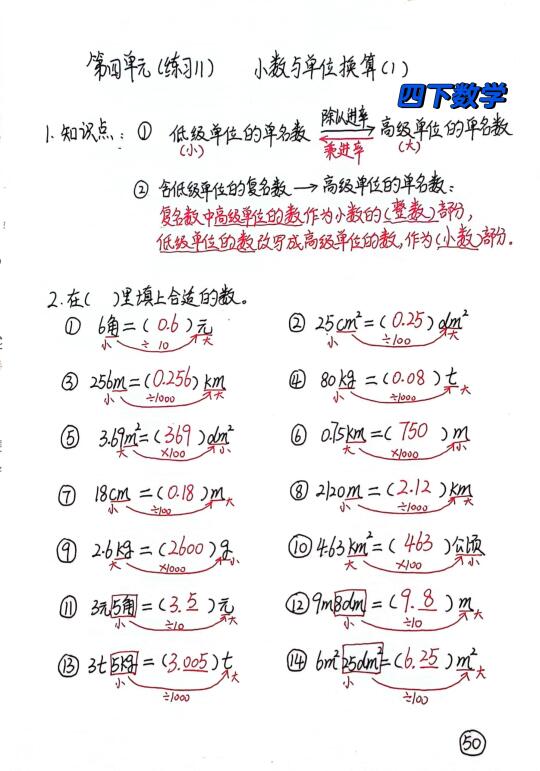 第四单元(练习11) 小数与单位换算(1)
四下数学
1.知识点: ① 低级单位的单名数 除以进率 高级单位的单名数
(小) 乘进率 (大)
② 含低级单位的复名数→高级单位的单名数:
复名数中高级单位的数作为小数的(整数)部分,
低级单位的数改写成高级单位的数,作为(小数)部分.
2.在( )里填上合适的数。
① 6角=(0.6)元 ② 25cm²=(0.25)dm²
小 ÷10 大 小 ÷100 大
③ 256m=(0.256)km ④ 80kg=(0.08)t
小 ÷1000 大 小 ÷1000 大
⑤ 3.69m²=(369)dm² ⑥ 0.75km=(750)m
大 ×100 小 大 ×1000 小
⑦ 18cm=(0.18)m ⑧ 2120m=(2.12)km
小 ÷100 大 小 ÷1000 大
⑨ 2.6kg=(2600)g ⑩ 4.63km²=(463)公顷
大 ×1000 小 大 ×100 小
⑪ 3元5角=(3.5)元 ⑫ 9m8dm=(9.8)m
小 ÷10 大 小 ÷10 大
⑬ 3t5kg=(3.005)t ⑭ 6m²25dm²=(6.25)m²
小 ÷1000 大 小 ÷100 大
50